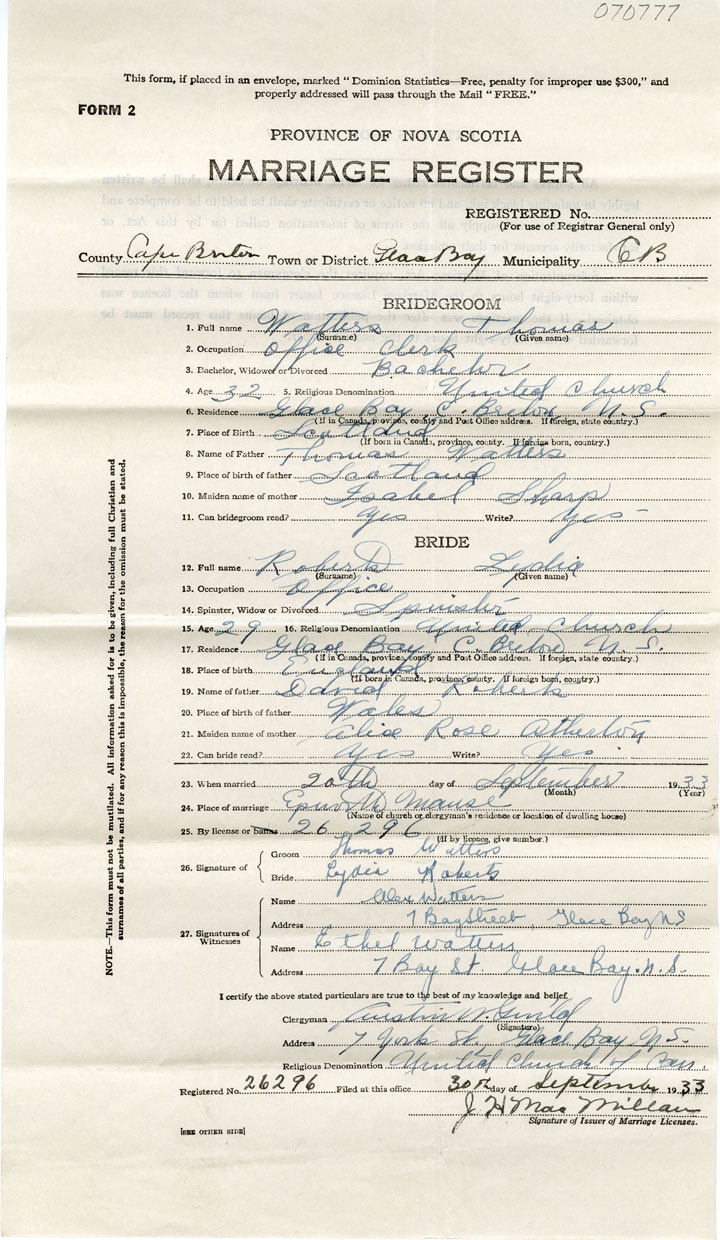 070777
This form, if placed in an envelope, marked "Dominion Statistics—Free, penalty for improper use $300," and
properly addressed will pass through the Mail "FREE."
FORM 2
PROVINCE OF NOVA SCOTIA
MARRIAGE REGISTER
REGISTERED No.
(For use of Registrar General only)
County Cape Breton Town or District Glace Bay Municipality CB
BRIDEGROOM
1. Full name Watters Thomas
(Surname) (Given name)
2. Occupation Office Clerk
3. Bachelor, Widower or Divorced Bachelor
4. Age 32 5. Religious Denomination United Church
6. Residence Glace Bay, C. Breton, N. S.
(If in Canada, province, county and Post Office address. If foreign, state country.)
7. Place of Birth Scotland
(If born in Canada, province, county. If foreign born, country.)
8. Name of Father Thomas Watters
9. Place of birth of father Scotland
10. Maiden name of mother Isabel Sharp
11. Can bridegroom read? Yes Write? Yes
BRIDE
12. Full name Roberts Lydia
(Surname) (Given name)
13. Occupation Office
14. Spinster, Widow or Divorced Spinster
15. Age 29 16. Religious Denomination United Church
17. Residence Glace Bay C. Breton N. S.
(If in Canada, province, county and Post Office address. If foreign, state country.)
18. Place of birth England
(If born in Canada, province, county. If foreign born, country.)
19. Name of father David Roberts
20. Place of birth of father Wales
21. Maiden name of mother Alice Rose Atherton
22. Can bride read? Yes Write? Yes
23. When married 20th day of September 1933
(Month) (Year)
24. Place of marriage Epworth Manse
(Name of church or clergyman's residence or location of dwelling house)
25. By license or banns 26296
(If by licence, give number.)
26. Signature of Groom Thomas Watters
Bride Lydia Roberts
27. Signatures of Witnesses Name Alex Watters
Address 7 Bay Street Glace Bay NS
Name Ethel Watters
Address 7 Bay St. Glace Bay. N.S.
I certify the above stated particulars are true to the best of my knowledge and belief.
Clergyman
(Signature)
Address 7 York St, Glace Bay N.S.
Religious Denomination United Church of Can.
Registered No. 26296 Filed at this office 30th day of September 1933
J H Mac Millan
Signature of Issuer of Marriage Licenses.
[SEE OTHER SIDE]
NOTE.—This form must not be mutilated. All information asked for is to be given, including full Christian and
surnames of all parties, and if for any reason this is impossible, the reason for the omission must be stated.